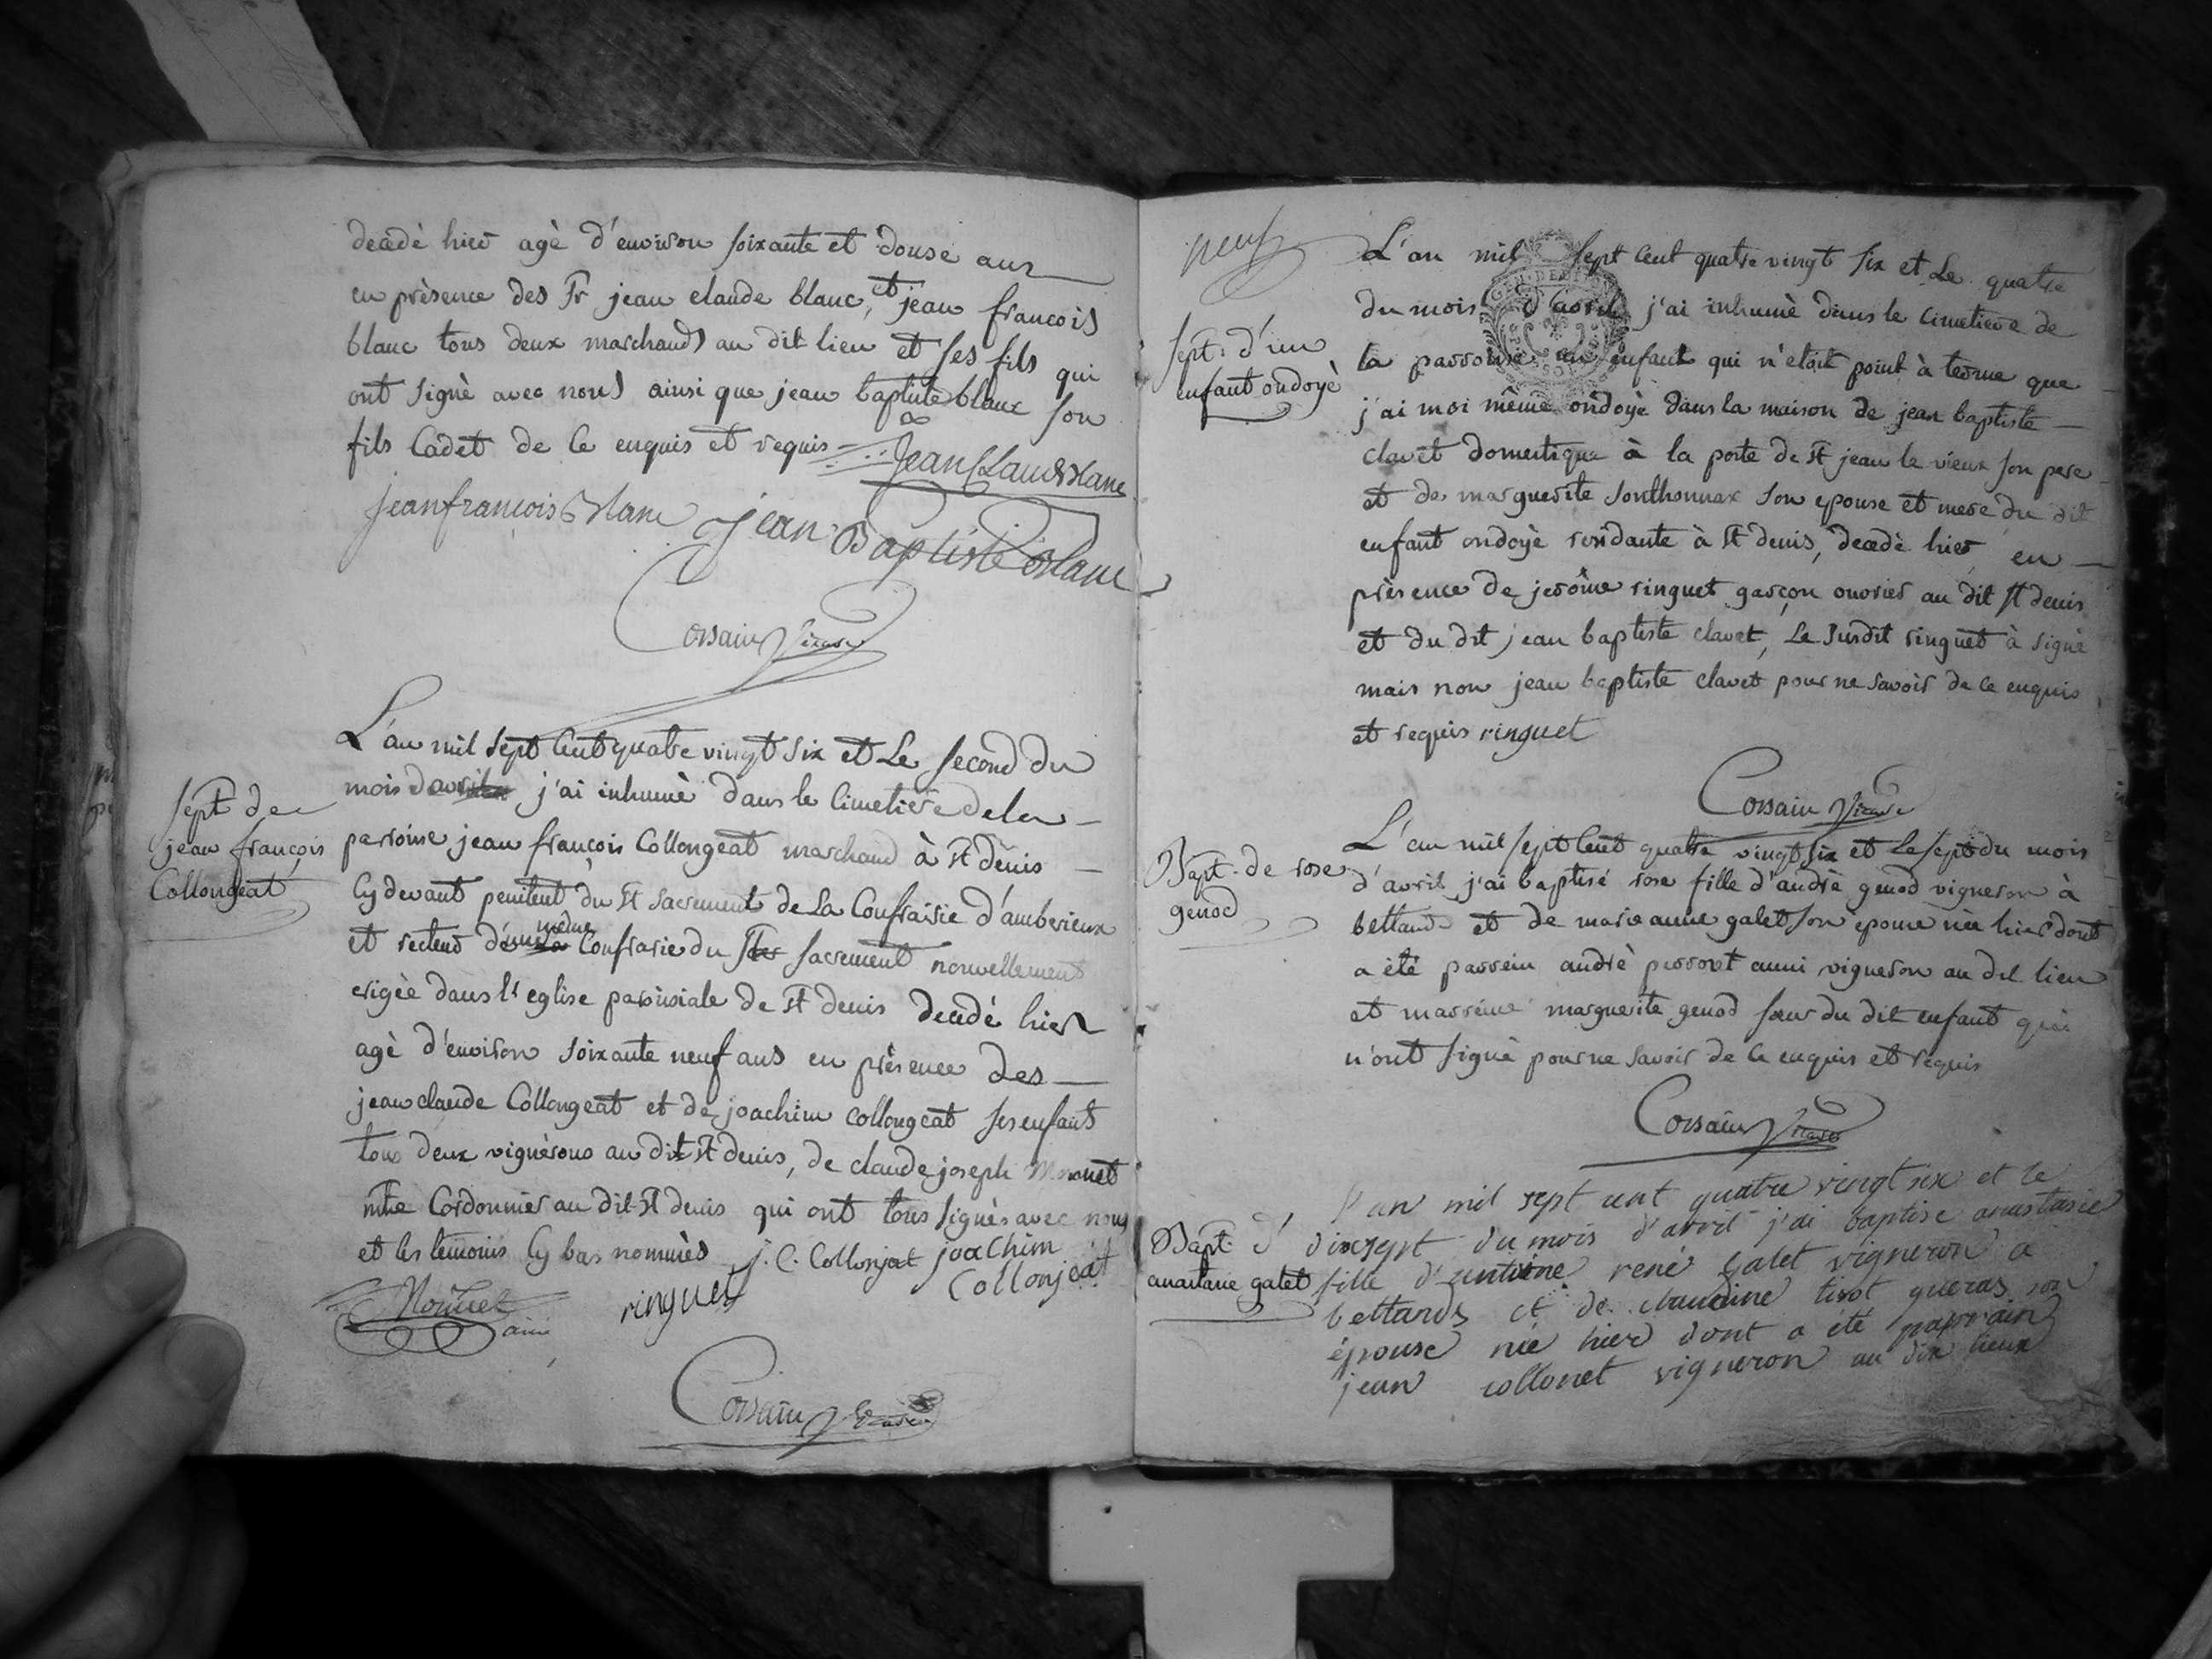 decedè hier agè d'environ soixante et douse ans
en prèsence des Sr jean claude blanc, et jean francois
blanc tous deux marchands au dit lieu et ses fils qui
ont signè avec nous ainsi que jean baptiste blanc son
fils Cadet de ce enquis et requis
Jean Claude Blanc
jean francois Blanc jean Baptiste Blanc
Corsain Vicaire
L'an mil sept Cent quatre vingt six et Le second du
mois d'avril j'ai inhumè dans le Cimetiere de la
sept de
jean françois
Collongeat
parroisse jean françois Collongeat marchand à St denis
Cy devant penitent du St sacrement de La Confrairie d'amberieux
et recteur d'une même Confrarie du St sacrement nouvellement
erigèe dans l'eglise paroissiale de St denis decedé hier
agè d'environ soixante neuf ans en prèsence des
jean claude Collongeat et de joachim collongeat ses enfants
tous deux vignèrons au dit St denis, de claude joseph
mtre Cordonnier au dit St denis qui ont tous signès avec nous
et les temoins Cy bas nommès j. C. Collonjeat joachim
Collonjeat
ringuet
ainé
Corsain Vicaire
neuf
L'an mil sept Cent quatre vingt six et Le quatre
du mois d'avril j'ai inhumè dans le cimetiere de
sept. d'un
enfant ondoyè
la parroisse un enfant qui n'etoit point à terme que
j'ai moi même ondoyè dans la maison de jean baptiste
clavet domestique à la porte de St jean le vieux son pere
et de marguerite sonthonnax son epouse et mere du dit
enfant ondoyè residante à St denis, decedè hier en
prèsence de jerôme ringuet garçon ouvrier au dit St denis
et du dit jean baptiste clavet, Le Susdit ringuet à signè
mais non jean baptiste clavet pour ne savoir de ce enquis
et requis ringuet
Corsain Vicaire
Bapt. de rose
genod
L'an mil sept Cent quatre vingt six et Le sept du mois
d'avril j'ai baptisé rose fille d'andrè genod vigneron à
bettand et de marie anne galet son epouse nèe hier dont
a été parrein andrè perrout aussi vigneron au dit lieu
et marreine marguerite genod sœur du dit enfant qui
n'ont signè pour ne savoir de ce enquis et requis
Corsain Vicaire
Bapt. d'
anastasie galet
l'an mil sept cent quatre vingt six et le
dixsept du mois d'avril j'ai baptise anastasie
fille d'antoine renè galet vigneron a
bettands et de claudine tisot queras son
épouse née hier dont a été parrain
jean collonet vigneron au dix lieux